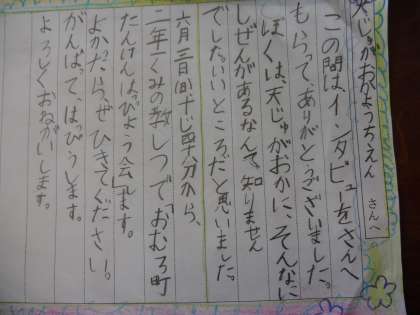 天じゅがおかようちえん さんへ
この間はインタビューをさんへ
もらって、ありがとうございました。
ぼくは、天じゅがおかに、そんなに
しぜんがあるなんて、知りません
でした。いいところだと思いました。
六月三日 十じ四十六分から、
二年一くみの教しつで「おむろ町
たんけんはっぴょう会」ます。
よかたら、ぜひきてください。
がんばて、はっぴうします。
よろしくおねがいします。